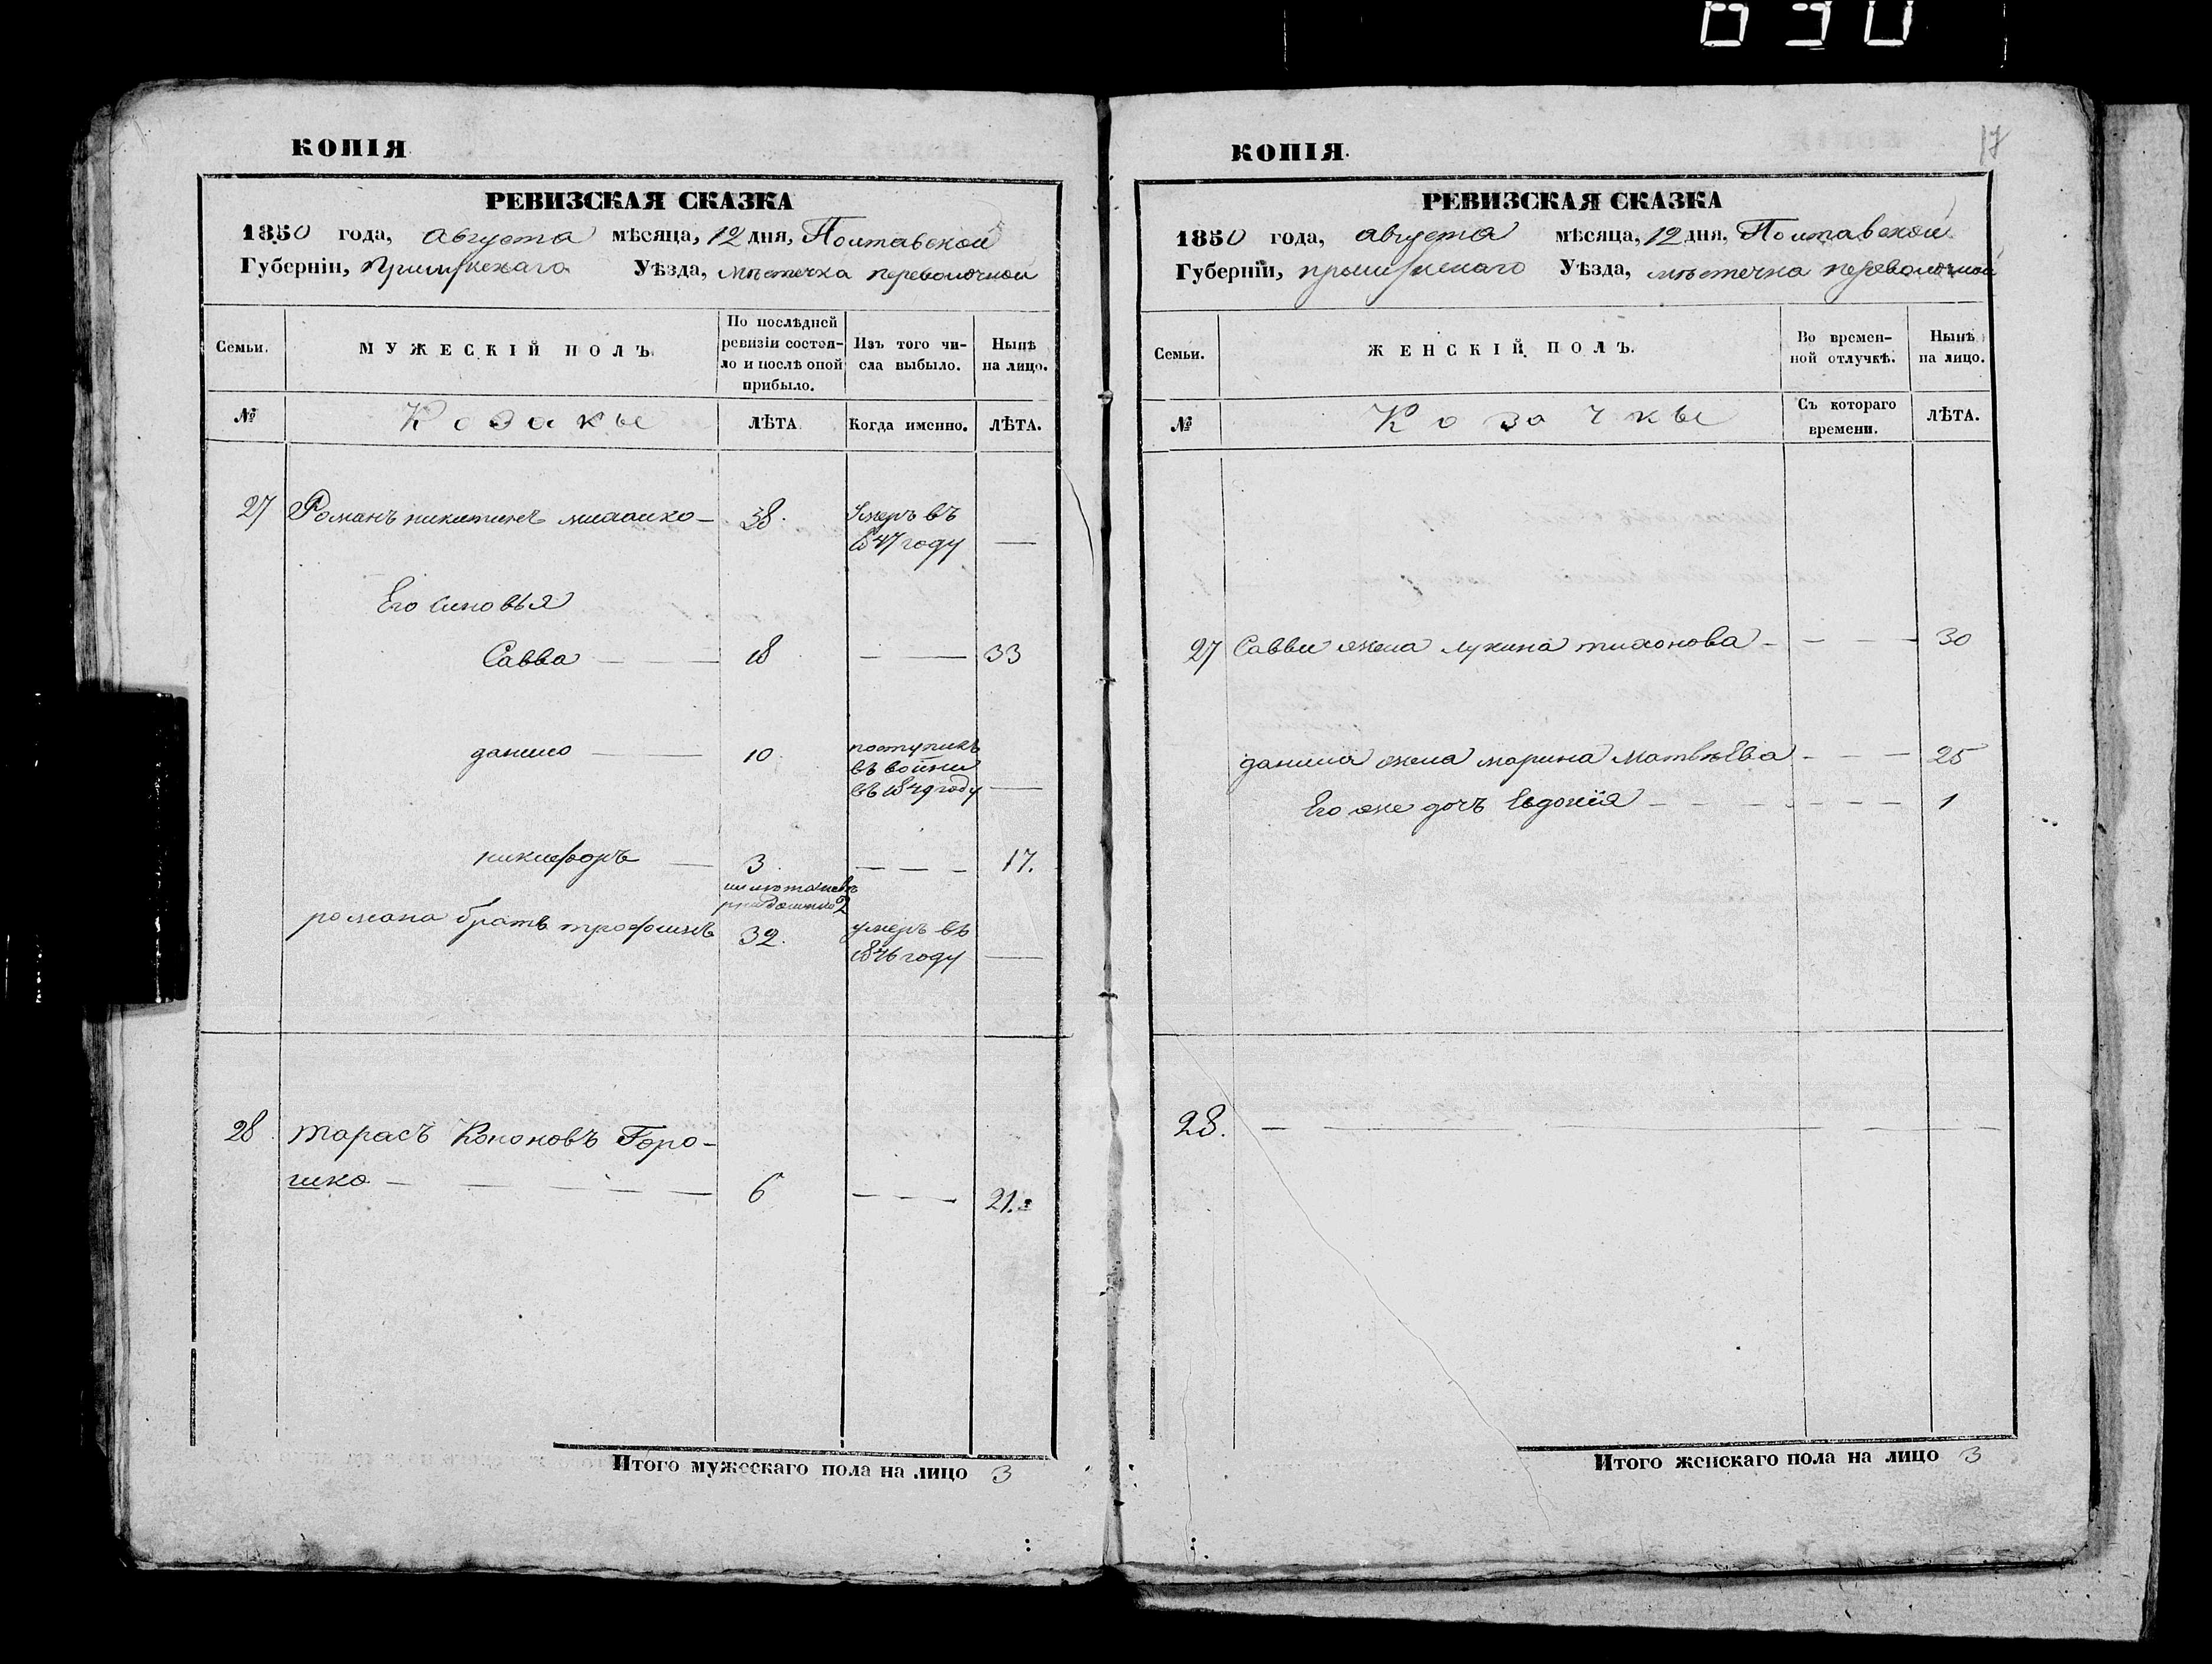 690
КОПІЯ
РЕВИЗСКАЯ СКАЗКА
1850 года, августа мѣсяца, 12 дня, Полтавской
Губерніи, Прилуцкаго Уѣзда, мѣстечка переволочной
Семьи.
МУЖЕСКІЙ ПОЛЪ.
По послѣдней
ревизіи состоя-
ло и послѣ оной
прибыло.
Изъ того чи-
сла выбыло.
Нынѣ
на лицо.
№
Козакы
ЛѢТА.
Когда именно.
ЛѢТА.
27 Романъ никитинъ михалко— 38. Умеръ въ
1847 году —
Его синовья
Савва — 18 — 33
данило — 10 поступилъ
въ войни
въ 1849 году —
никифоръ — 3 — 17.
романа братъ трофимъ 32. умеръ въ
1846 году —
28 тарасъ Кононовъ Горо-
шко — 6 — 21.
Итого мужескаго пола на лицо 3
17
КОПІЯ.
РЕВИЗСКАЯ СКАЗКА
1850 года, августа мѣсяца, 12 дня, Полтавской
Губерніи, прилуцкаго Уѣзда, мѣстечка переволочной
Семьи.
ЖЕНСКІЙ ПОЛЪ.
Во времен-
ной отлучкѣ.
Нынѣ
на лицо.
№
Козачкы
Съ котораго
времени.
ЛѢТА.
27 Савви жена лукина тихонова — 30
данила жена марина Матвѣева — 25
Его же дочъ Евдокія — 1
28. —
Итого женскаго пола на лицо 3